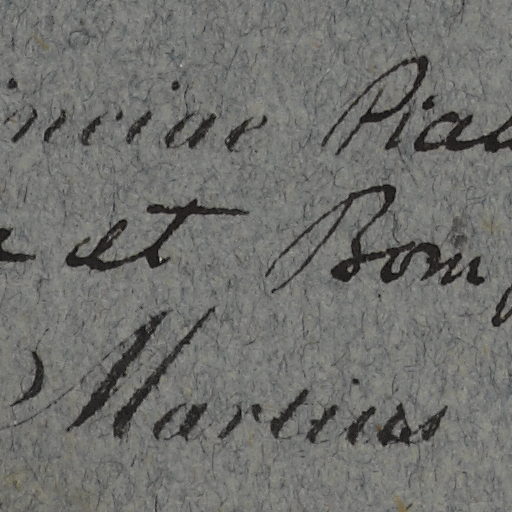 inciae Piau
a et Bomf
Martius